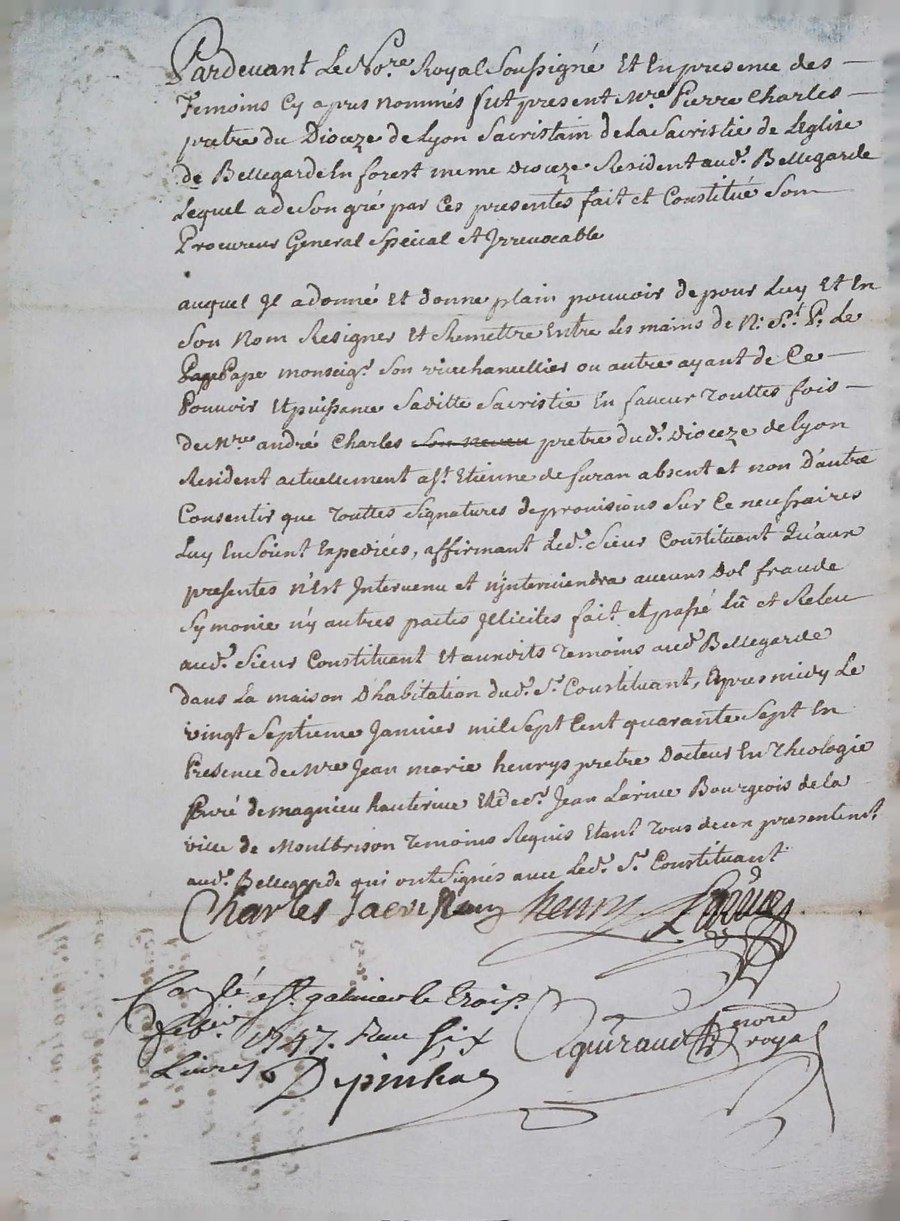 Pardevant Le No.re Royal Soussigné Et En presence des
Temoins Cy apres nommés fut present m.re Pierre Charles
pretre du Dioceze de Lyon Sacristain de la Sacristie de L'eglise
de Bellegarde En forest meme Dioceze Resident aud.t Bellegarde
Lequel a de Son gré par Ces presentes fait et Constitué Son
Procureur General Special Et Irrevocable
auquel Il a donné Et donne plain pouvoir de pour Luy Et En
Son Nom Resigner Et Remettre Entre Les mains de N. S.t P. Le
Pape monseig.r Son vicechancellier ou autre ayant de Ce
Pouvoir Et puissance Saditte Sacristie En faveur Touttes fois
de m.re andré Charles Son neveu pretre du d.t Dioceze de Lyon
Resident actuellement a S.t Etienne de furan absent et non D'autre
Consentir que Touttes Signatures de provisions Sur Ce necessaires
Luy En Soient Expediées, affirmant Led.t Sieur Constituant Qu'aux
presentes n'Est Intervenu et n'interviendra aucuns Dol fraude
Symonie n'y autres pactes Illicites fait Et passé Lû et Releu
aud.t Sieur Constituant Et auxdits Temoins aud.t Bellegarde
dans La maison D'habitation dud.t S.r Constituant, apres midy Le
vingt Septieme Janvier mil Sept Cent quarante Sept En
Presence de m.re Jean marie henrys pretre Docteur En Theologie
Curé de magnieu hauterive Et de S.r Jean Larive Bourgeois de la
ville de Montbrison Temoins Requis Etant Tous deux presentem.t
aud.t Bellegarde qui ont Signés avec Led.t S.r Constituant
Charles henrys Larive
a S.t galmier le trois
1747. Six
Livres
royal